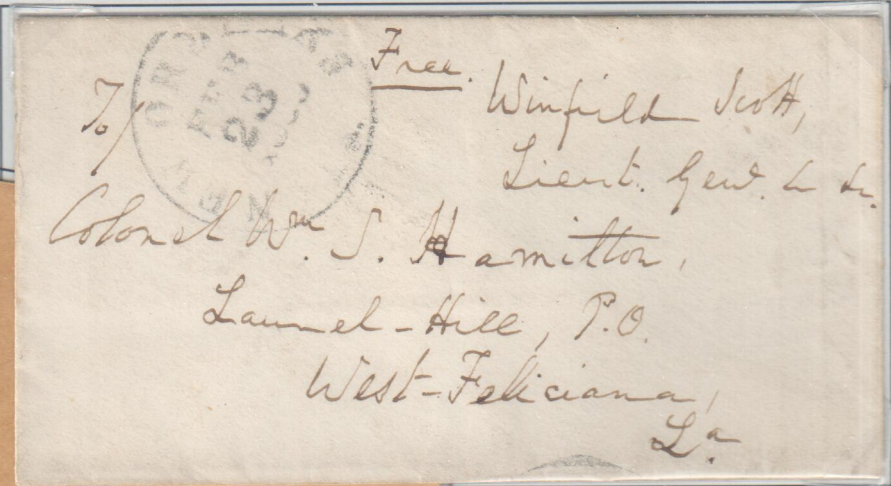 NEW ORLEANS LA.
FEB
23
Free.
Winfield Scott,
Lieut. Genl.
To/
Colonel Wm. S. Hamilton,
Laurel-Hill, P.O.
West-Feliciana,
La.